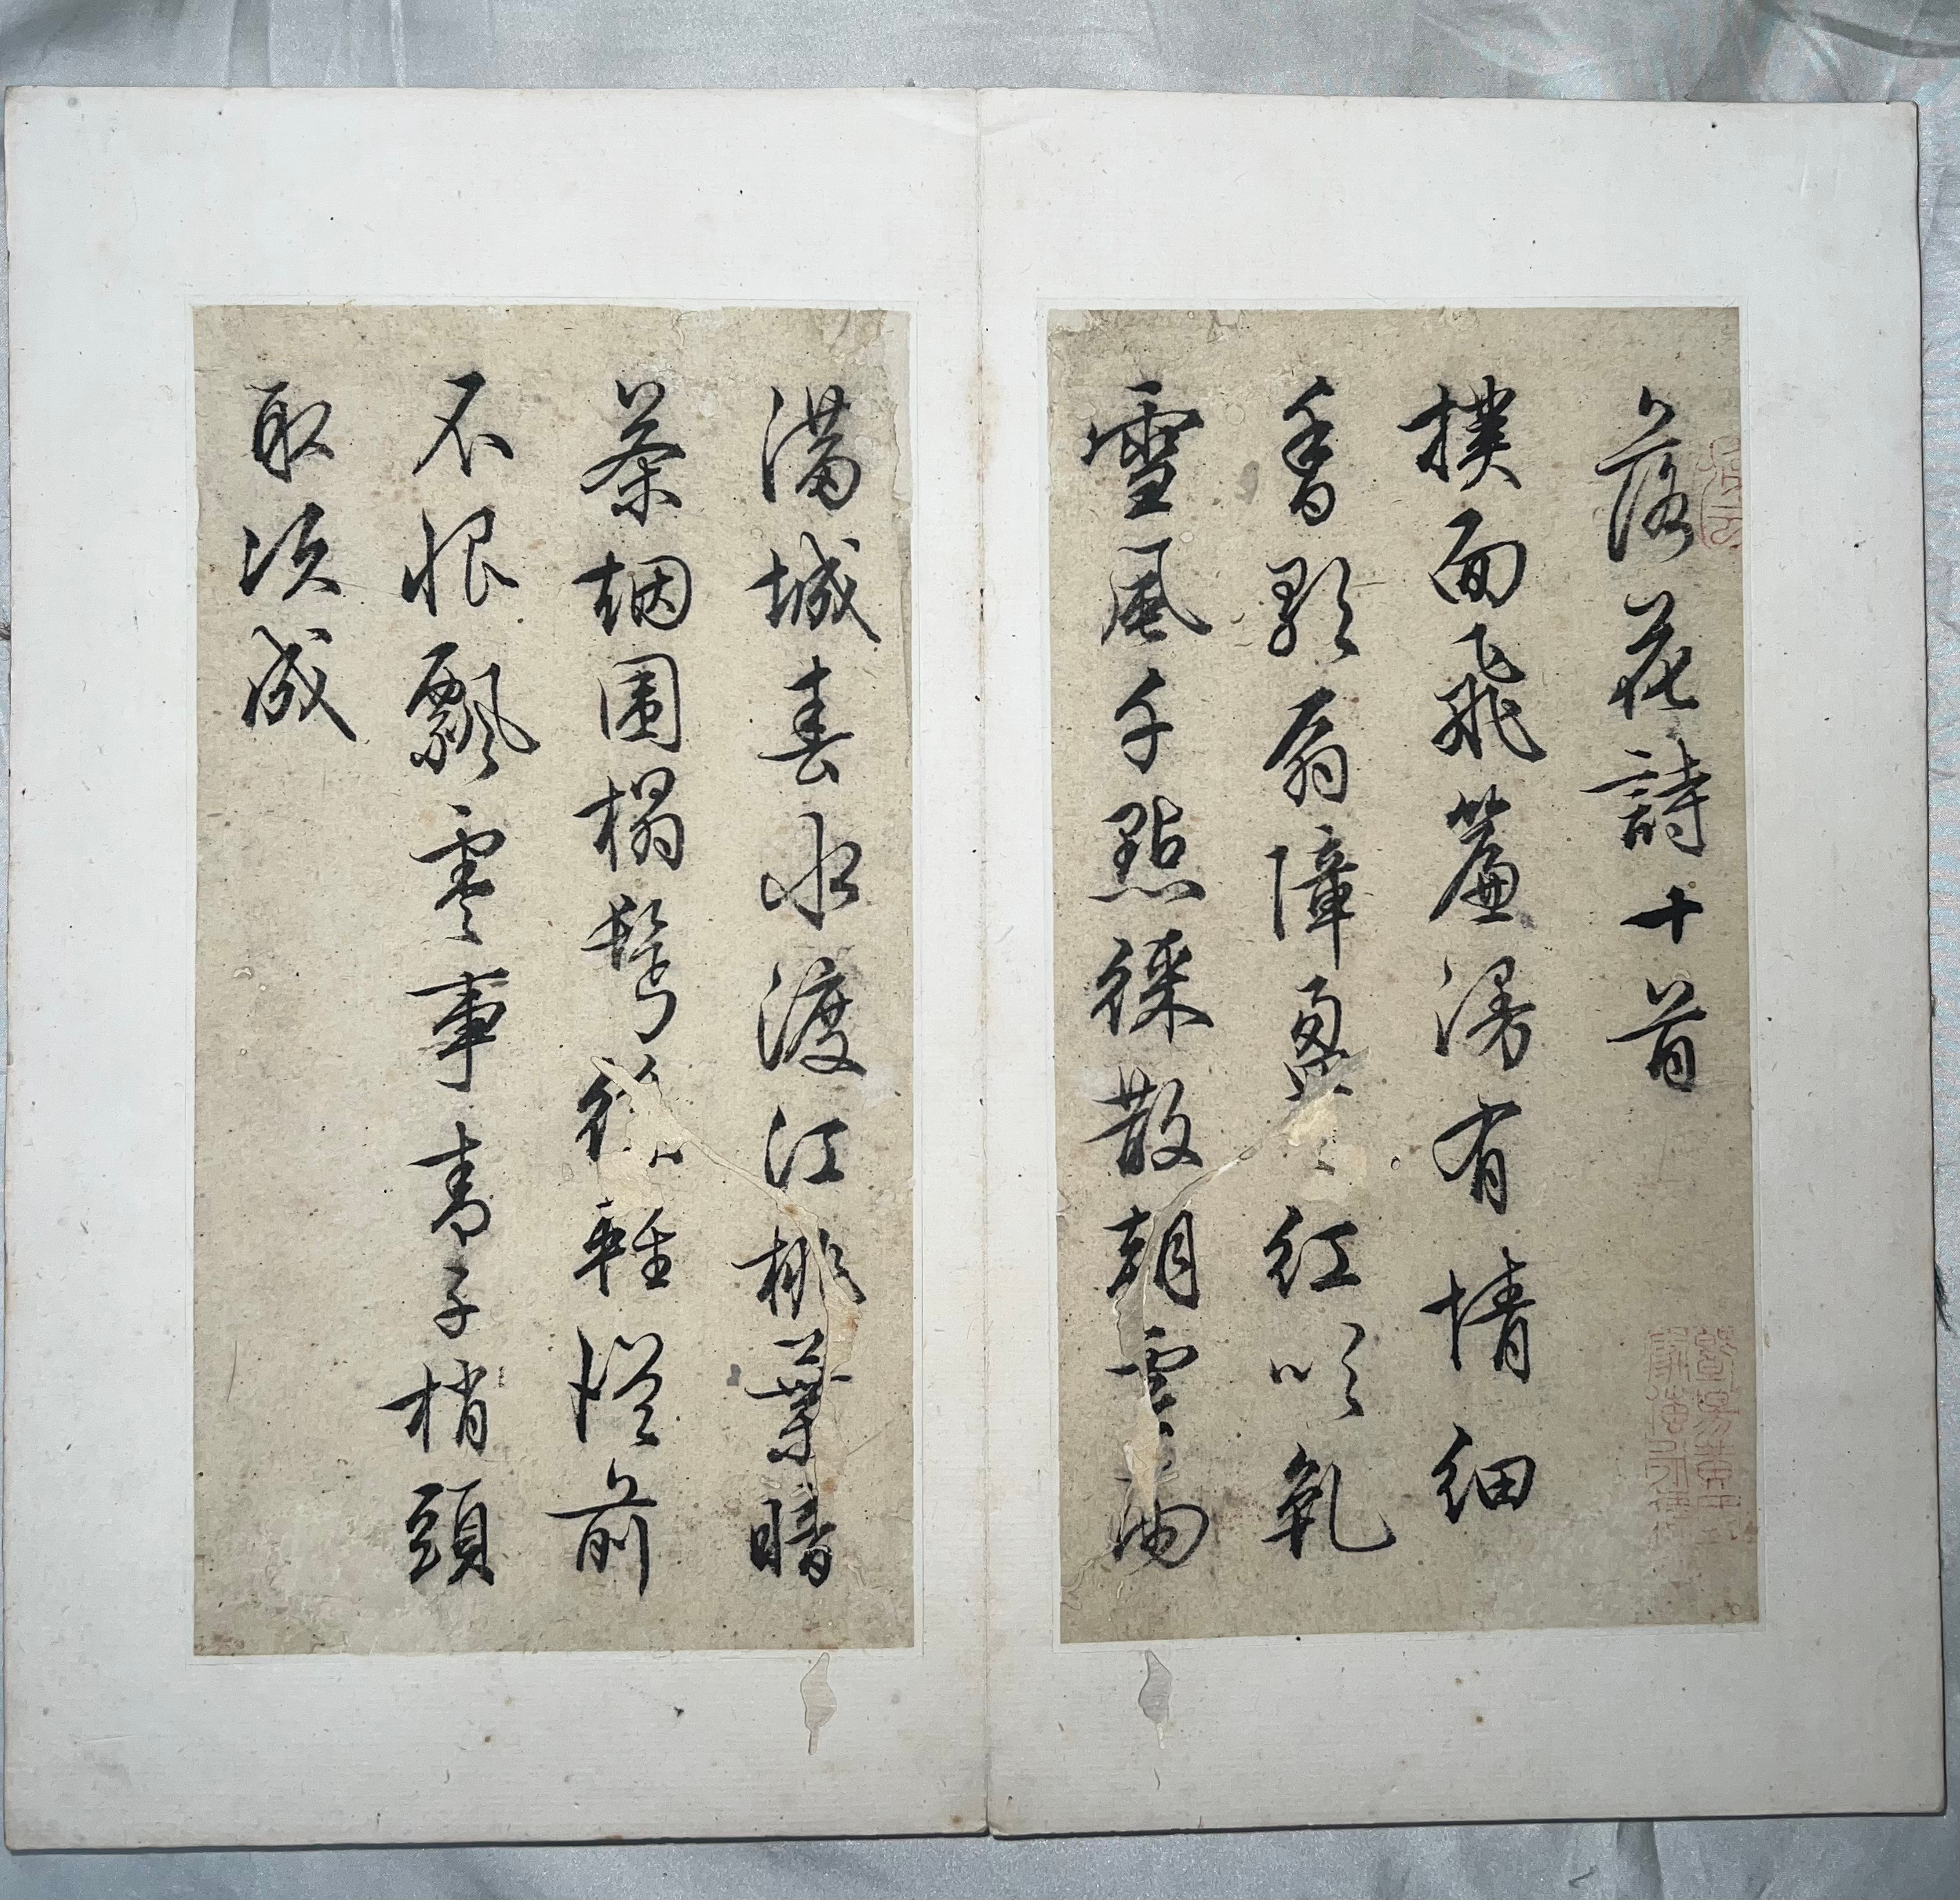 落花詩十首
撲面飛簾漫有情細
香歌扇障盈紅吹乾
雪風千點綵散朝雲雨
滿城春水渡江桃葉暗
茶烟圍榻鬢絲輕從前
不恨飄零事青子梢頭
取次成